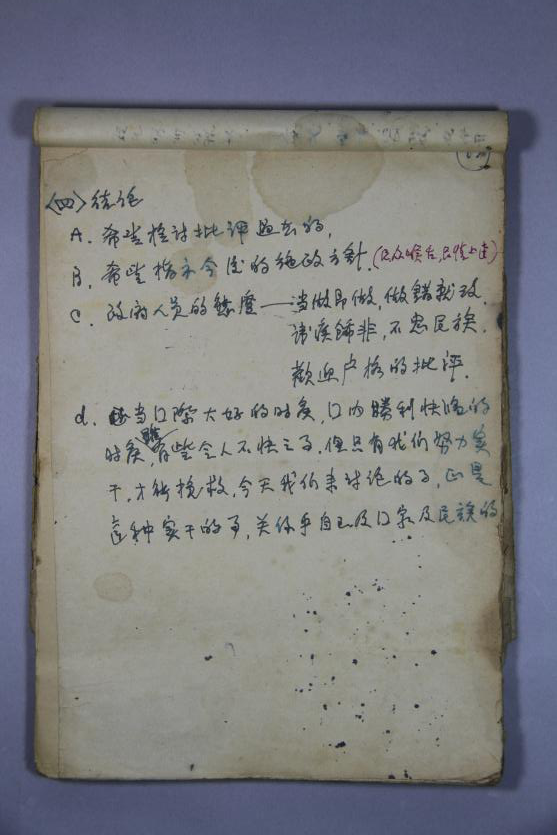 〈四〉結论
A. 希望检討批评过去的,
B. 希望指示今后的施政方針.(民众喉舌,民情上达)
C. 政府人员的態度——当做即做,做錯就改.
諱疾飾非,不忠民族.
歡迎严格的批评.
d. 当口际大好的时候,口内勝利快临的
时候,雖有些令人不快之事.但只有我们努力实
干,才能挽救,今天我们来討论的事,正是
这种实干的事,关係乎自己及口家及民族的